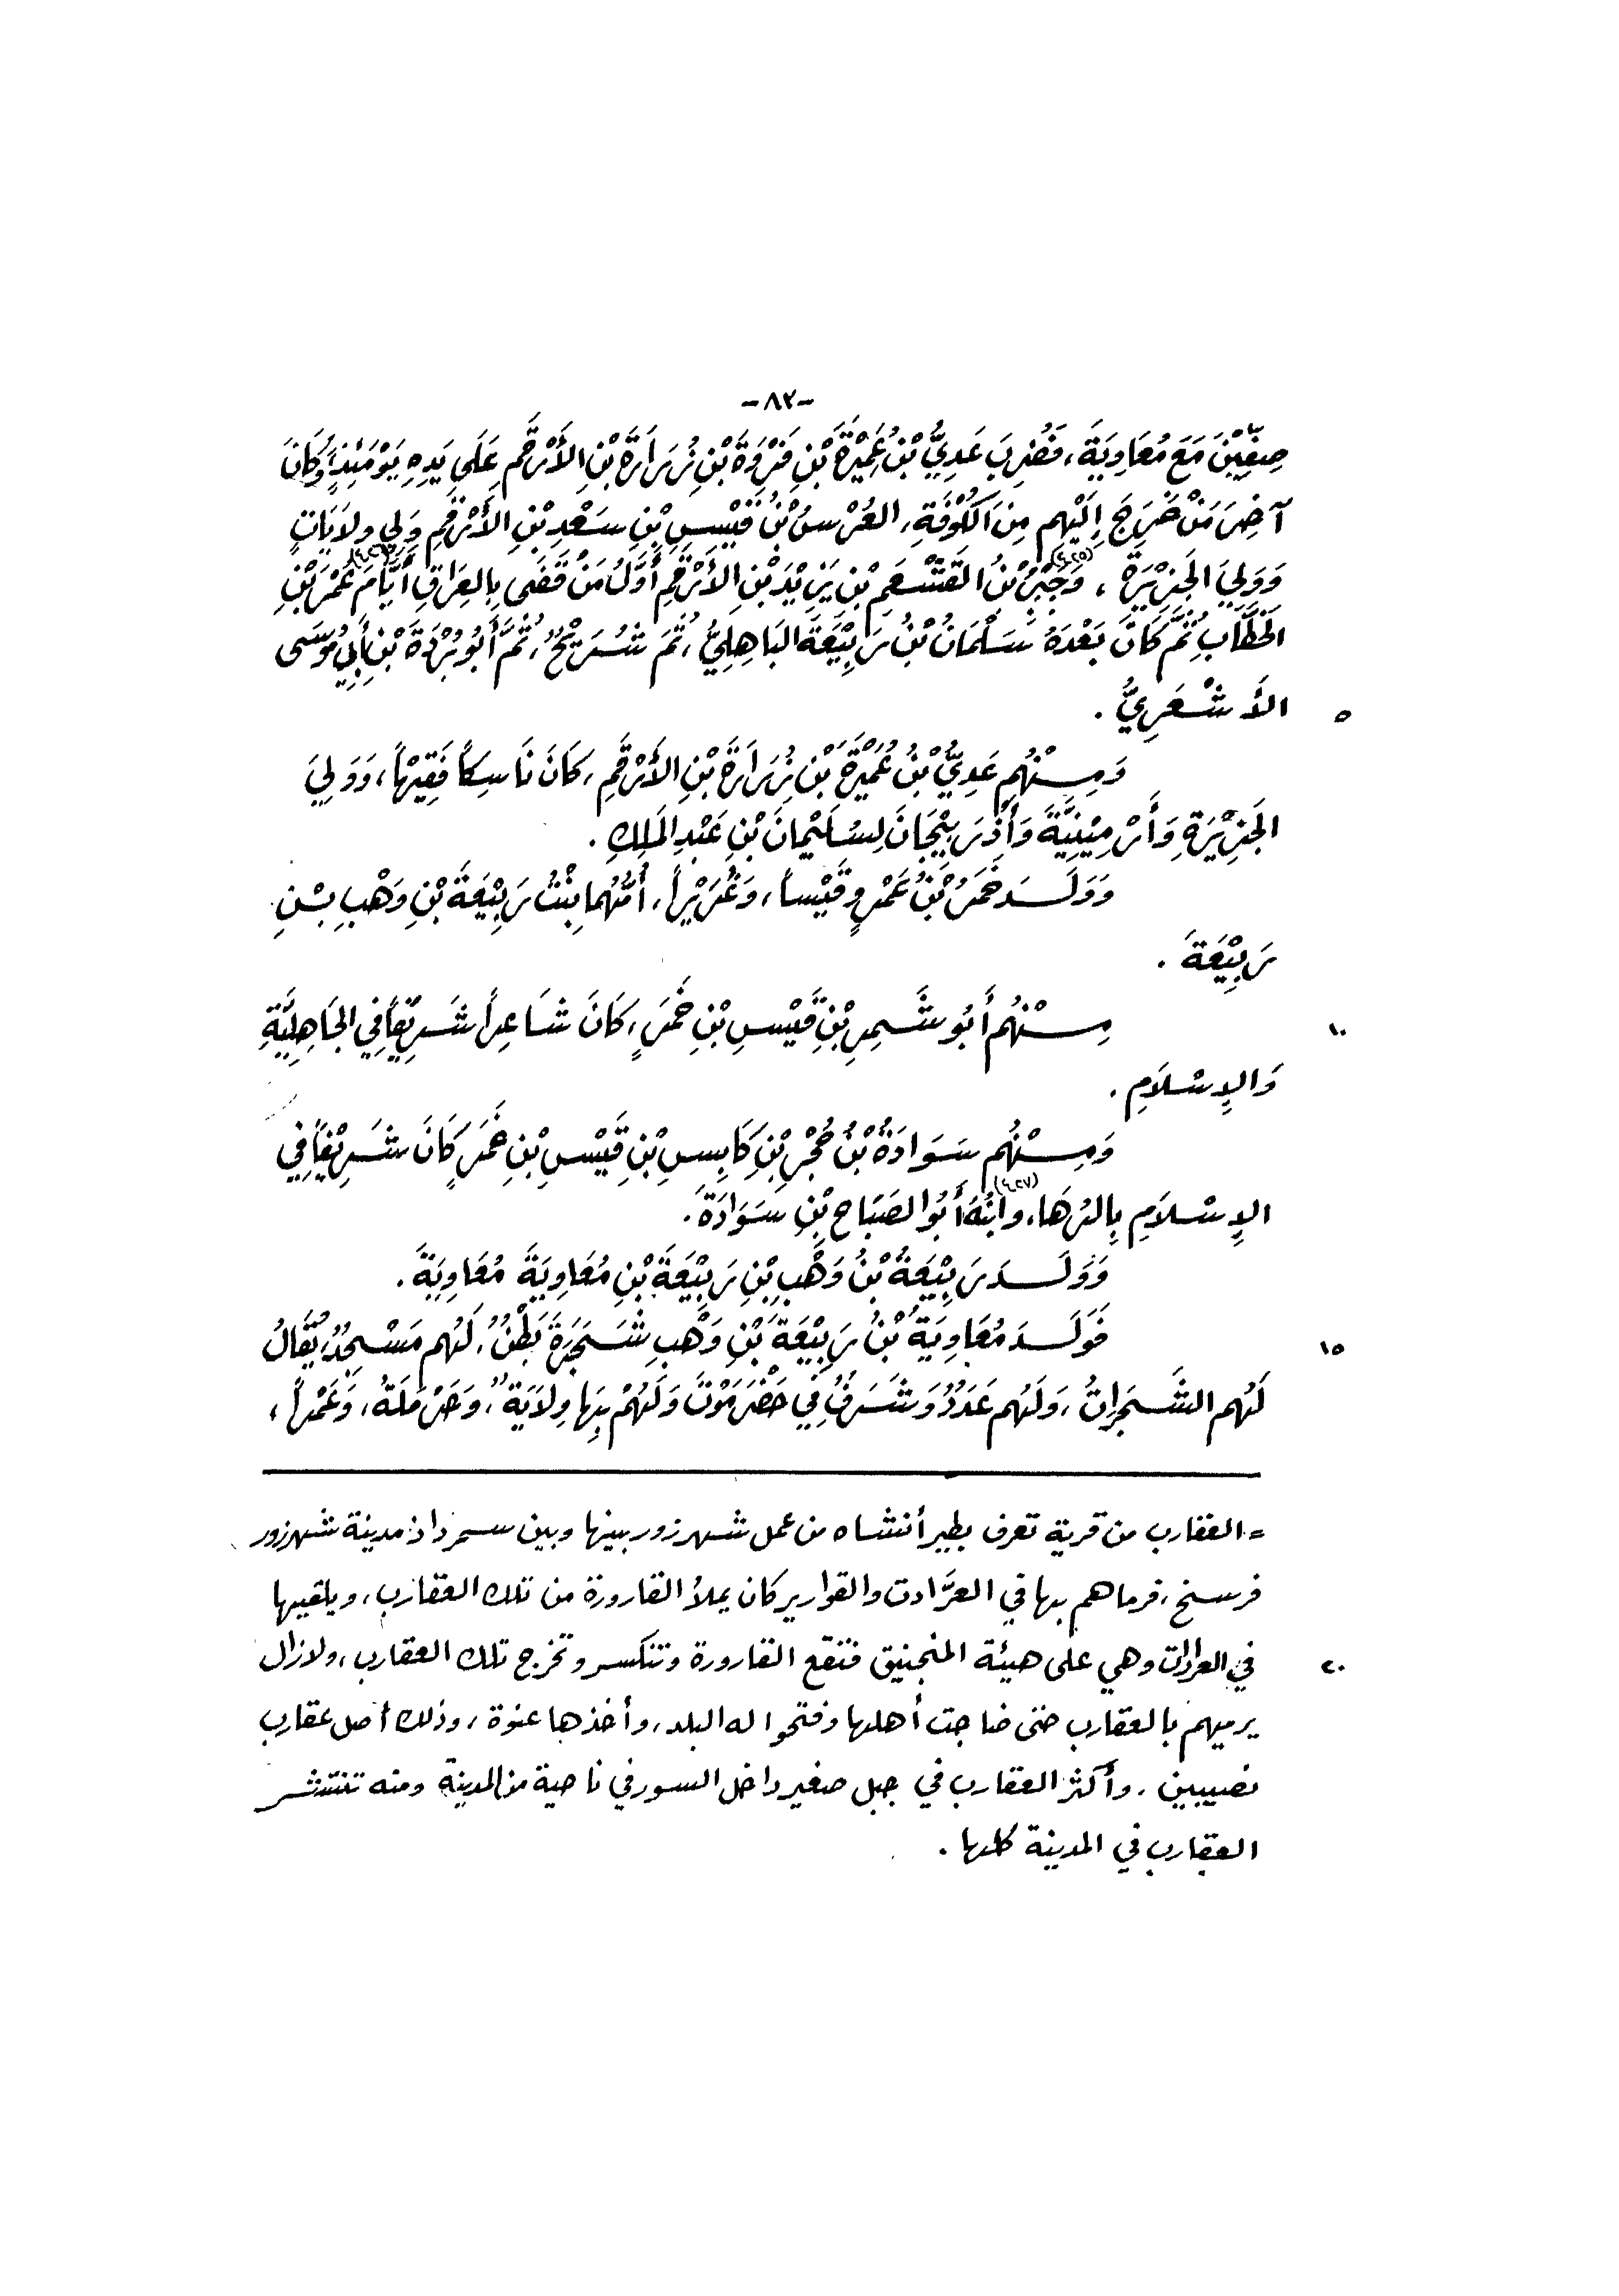 -٨٢-
صِفِّيْنَ مَعَ مُعَاوِيَةَ، فَضُرِبَ عَدِيُّ بْنُ عَمِيْرَةَ بْنِ فَرْوَةَ بْنِ زُرَارَةَ بْنِ الأَرْقَمِ عَلَى يَدِهِ يَوْمَئِذٍ، وَكَانَ
آخِرَ مَنْ خَرَجَ إِلَيْهِم مِنَ الكُوْفَةِ، العُرْسُ بْنُ قَيْسِ بْنِ سَعْدِ بْنِ الأَرْقَمِ وَلِي وِلَايَاتٍ
وَوَلِيَ الجَزِيْرَةَ، وَجَبْرُ بْنُ القَشْعَمِ بْنِ يَزِيْدَ بْنِ الأَرْقَمِ أَوَّلُ مَنْ قَضَى بِالعِرَاقِ أَيَّامَ عُمَرَ بْنِ
الخَطَّابِ ثُمَّ كَانَ بَعْدَهُ سَلْمَانُ بْنُ رَبِيْعَةَ البَاهِلِيُّ، ثُمَّ شُرَيْحٌ، ثُمَّ أَبُو بُرْدَةَ بْنِ أَبِي مُوْسَى
الأَشْعَرِيُّ.
٥
وَمِنْهُم عَدِيُّ بْنُ عُمَيْرَةَ بْنِ زُرَارَةَ بْنِ الأَرْقَمِ، كَانَ نَاسِكاً فَقِيْهاً، وَوَلِيَ
الجَزِيْرَةِ وَأَرْمِيْنِيَّةَ وَأَذْرَبِيْجَانَ لِسُلَيْمَانَ بْنِ عَبْدِ المَلِكِ.
وَوَلَدَ خَمَرُ بْنُ عَمْرٍو قَيْساً، وَعُرَيْراً، أُمُّهُما بِنْتُ رَبِيْعَةَ بْنِ وَهْبِ بْنِ
رَبِيْعَةَ.
مِنْهُم أَبُو شَمِرِ بْنِ قَيْسِ بْنِ خَمَرٍ، كَانَ شَاعِراً شَرِيْفاً فِي الجَاهِلِيَّةِ
١٠
وَالإِسْلَامِ.
وَمِنْهُم سَوَادَةُ بْنُ حُجْرِ بْنِ كَابِسِ بْنِ قَيْسِ بْنِ خَمَرٍ كَانَ شَرِيْفاً فِي
الإِسْلَامِ بِالرُهَا، وابْنُهُ أَبُو الصَبَاحِ بْنِ سَوَادَةَ. (٤٢٧)
وَوَلَدَ رَبِيْعَةُ بْنُ وَهْبِ بْنِ رَبِيْعَةَ بْنِ مُعَاوِيَةَ مُعَاوِيَةَ.
فَوَلَدَ مُعَاوِيَةُ بْنُ رَبِيْعَةَ بْنِ وَهْبِ شَجَرَةَ بَطْنٌ، لَهُم مَسْجِدٌ، يُقَالُ
١٥
لَهُم الشَّجَرَاتُ، وَلَهُم عَدَدٌ وَشَرَفٌ فِي حَضْرَمَوْتَ وَلَهُمْ بِهَا وِلَايَةٌ، وَحَرْمَلَةَ، وَعَمْراً،
= العقارب من قرية تعرف بطيرأنشاه من عمل شهرزور بينها وبين سمرداذ مدينة شهرزور
فرسخ، فرماهم بها في العرَّادت والقوارير كان يملأ القارورة من تلك العقارب، ويلقيها
في العرادات وهي على هيئة المنجنيق فتقع القارورة وتنكسر وتخرج تلك العقارب، ولازال
٢٠
يرميهم بالعقارب حتى ضاجت أهلها وفتحوا له البلد، وأخذها عنوة، وذلك أصل عقارب
نصيبين. وأكثر العقارب في جبل صغير داخل السور في ناحية من المدينة ومنه تنتشر
العقارب في المدينة كلها.